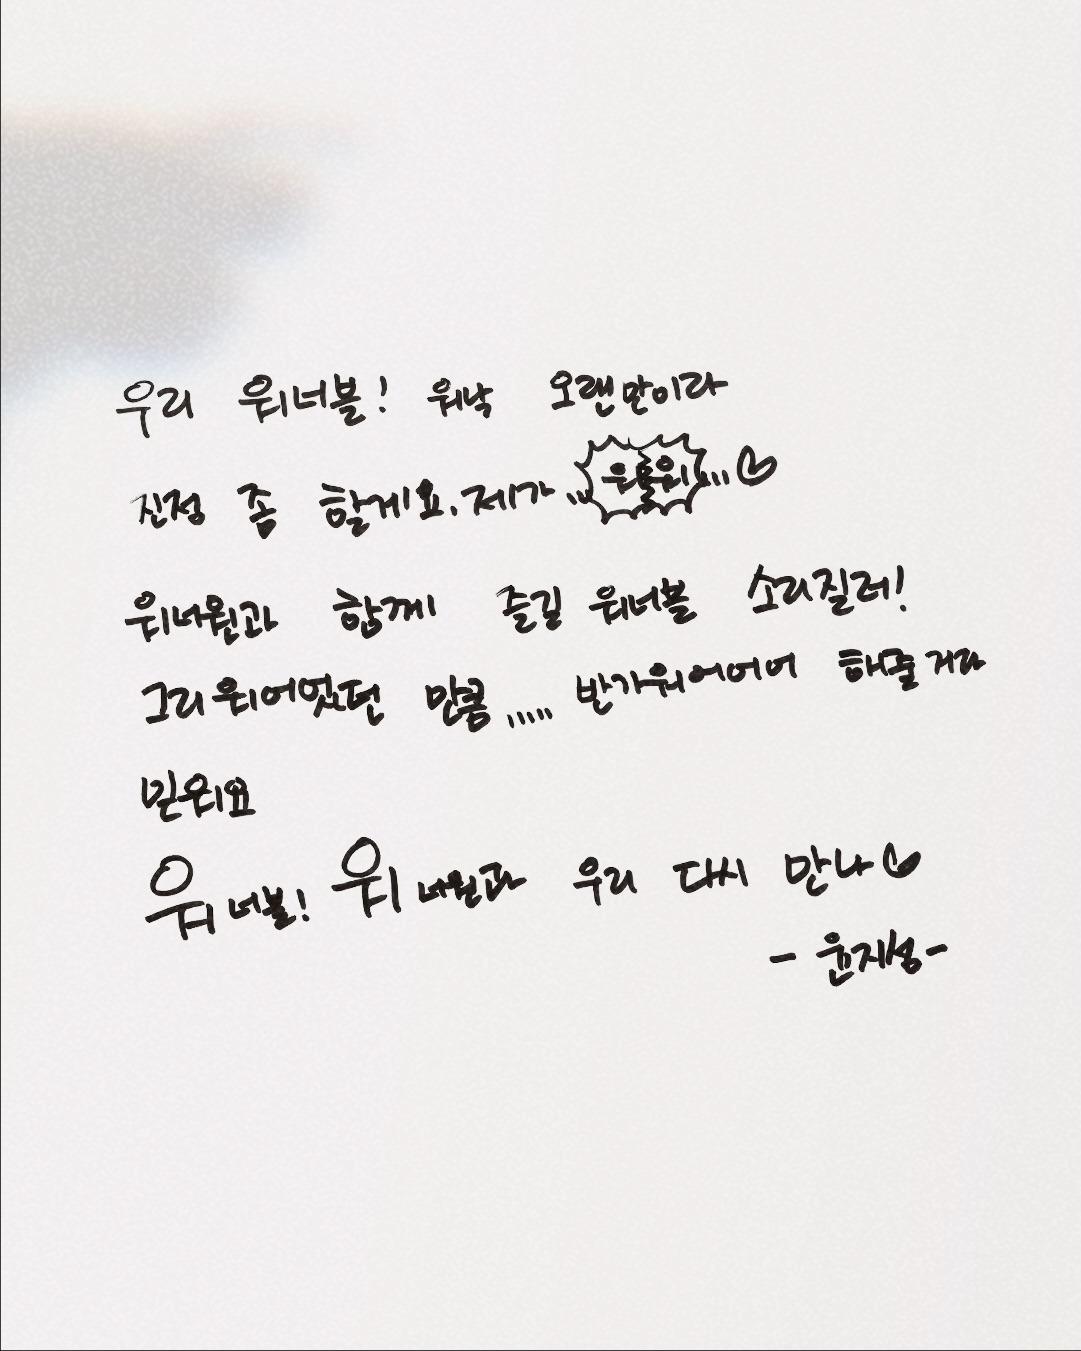 우리 워너블! 워낙 오랜만이라
진정 좀 할게요. 제가... 우롤워... ♡
워너원과 함께 즐길 워너블 소리질러!
그리워어었던 만큼..... 반가워어어어 해줄거라
믿워요
워너블! 워너원과 우리 다시 만나♡
- 윤지성 -